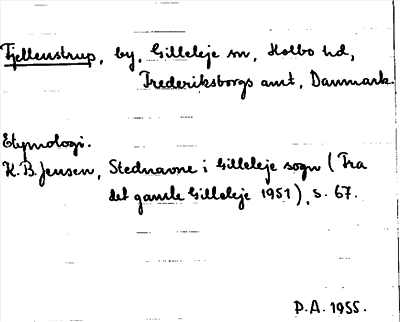 Fjellenstrup, by, Gilleleje sn, Holbo hd,
Frederiksborgs amt, Danmark.
Etymologi.
K.B. Jensen, Stednavne i Gilleleje sogn (Fra
det gamle Gilleleje 1951), s. 67.
P.A. 1955.